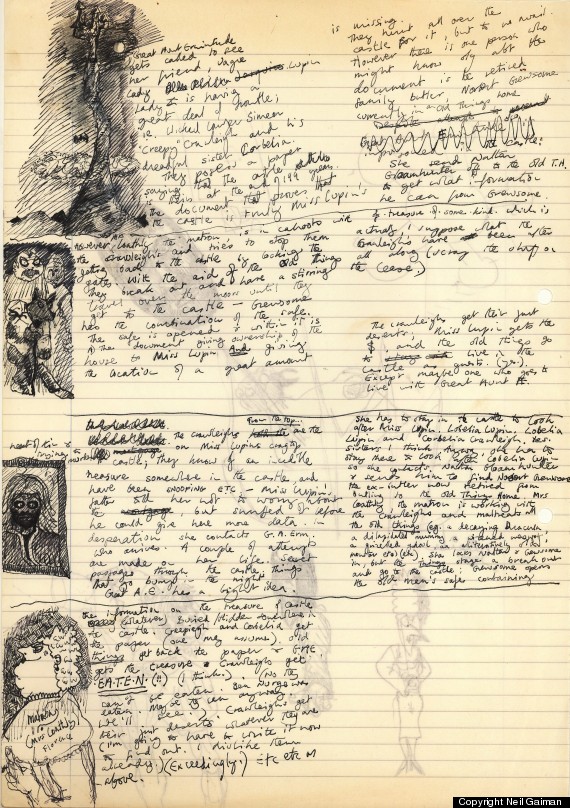 Great Aunt Ermintrude
gets called to see
her friend, Vague
Lady Lupin
Lady L is having a
great deal of trouble;
ie, Wicked Lawyer Simeon
"Creepy" Crawleigh and his
dreadful sister Corbelia.
They possess a paper
saying that the castle
is theirs at the end of 199 years.
the document that proves that
the castle is truly Miss Lupin's
is missing.
They hunt all over the
castle for it, but to no avail.
However there is one person who
might know of the
document is the retired
family butler, Nordort Grewsome
currently in a Old Things Home
the castle.
She sends Nalton
Gloamhunter to the Old T.H.
to get what information
he can from Grewsome.
However, Loathly the matron, is in cahoots with
the Crawleighs and tries to stop them
getting back to the castle by locking the
gates. With the aid of the Old things
They break out, and have a stirring
travel over the moors until they
get to the castle - Grewsome
has the combination of the safe.
The safe is opened & within it is
A) The document giving ownership of the
house to Miss Lupin And giving
the location of a great amount
of treasure of some kind. which is
actually, I suppose what the
Crawleighs have been after
all along (vcrmg the end of
the lease.)
The Crawleighs get their just
deserts. Miss Lupin gets the
$, and the old things go
to live in the
castle as guests. (yes).
Except maybe one who goes to
live with Great Aunt E.
From the top...
The Crawleighs are the
on Miss Lupins craggtop
castle, they know of an incredible
treasure somewhere in the castle, and
have been snooping etc. Miss Lupin's
father told her not to worry about
the mortgage but snuffed it before
he could give here more data. in
desperation she contacts G.A. Erm.
who arrives. A couple of attempts
are made on her life. Secret
passages through the castle, things
that go bump in the night.
Great A.E. has a bright idea.
She has to stay in the castle to look
after Miss Lupin. Lobelia Lupin. Lobelia
Lupin and Corbelia Crawleigh. Yes.
Sisters, I think. Anyway, she has to
stay there & look after Lobelia Lupin
so she contacts Nalton Gloamhunter
& sends him to find Nordort Grewsome
the ex-butler now retired from
butling to the Old Things Home. Mrs
Loathly the matron is working with
the Crawleighs and maltreats all
the old things (eg. a decaying Dracula
a dilapidated mummy a withered werewolf,
a pickled ghoul, an
etc) etc. She locks Nalton & Grewsome
in, but the Things stage a break out
and go to the castle. Grewsome opens
the old man's safe containing
the information on the treasure of castle
Buried hidden somewhere in
the castle. Creepleigh and Corbelid get
the paper, (one may assume). Old
things get back the paper & GAE
gets the treasure. Crawleighs get
E.A.T.E.N. (!!) (I think.). (No they
can't be eaten. Ben Durge was
eaten. Maybe anyway.
We'll see.) Crawleighs get
their just deserts. whatever they are
(I'm going to have to write it now
to find out. I dislike them
already.) (Exceedingly!) Etc etc
above.
Matron
(Mrs Loathly)
Florence
Copyright Neil Gaiman